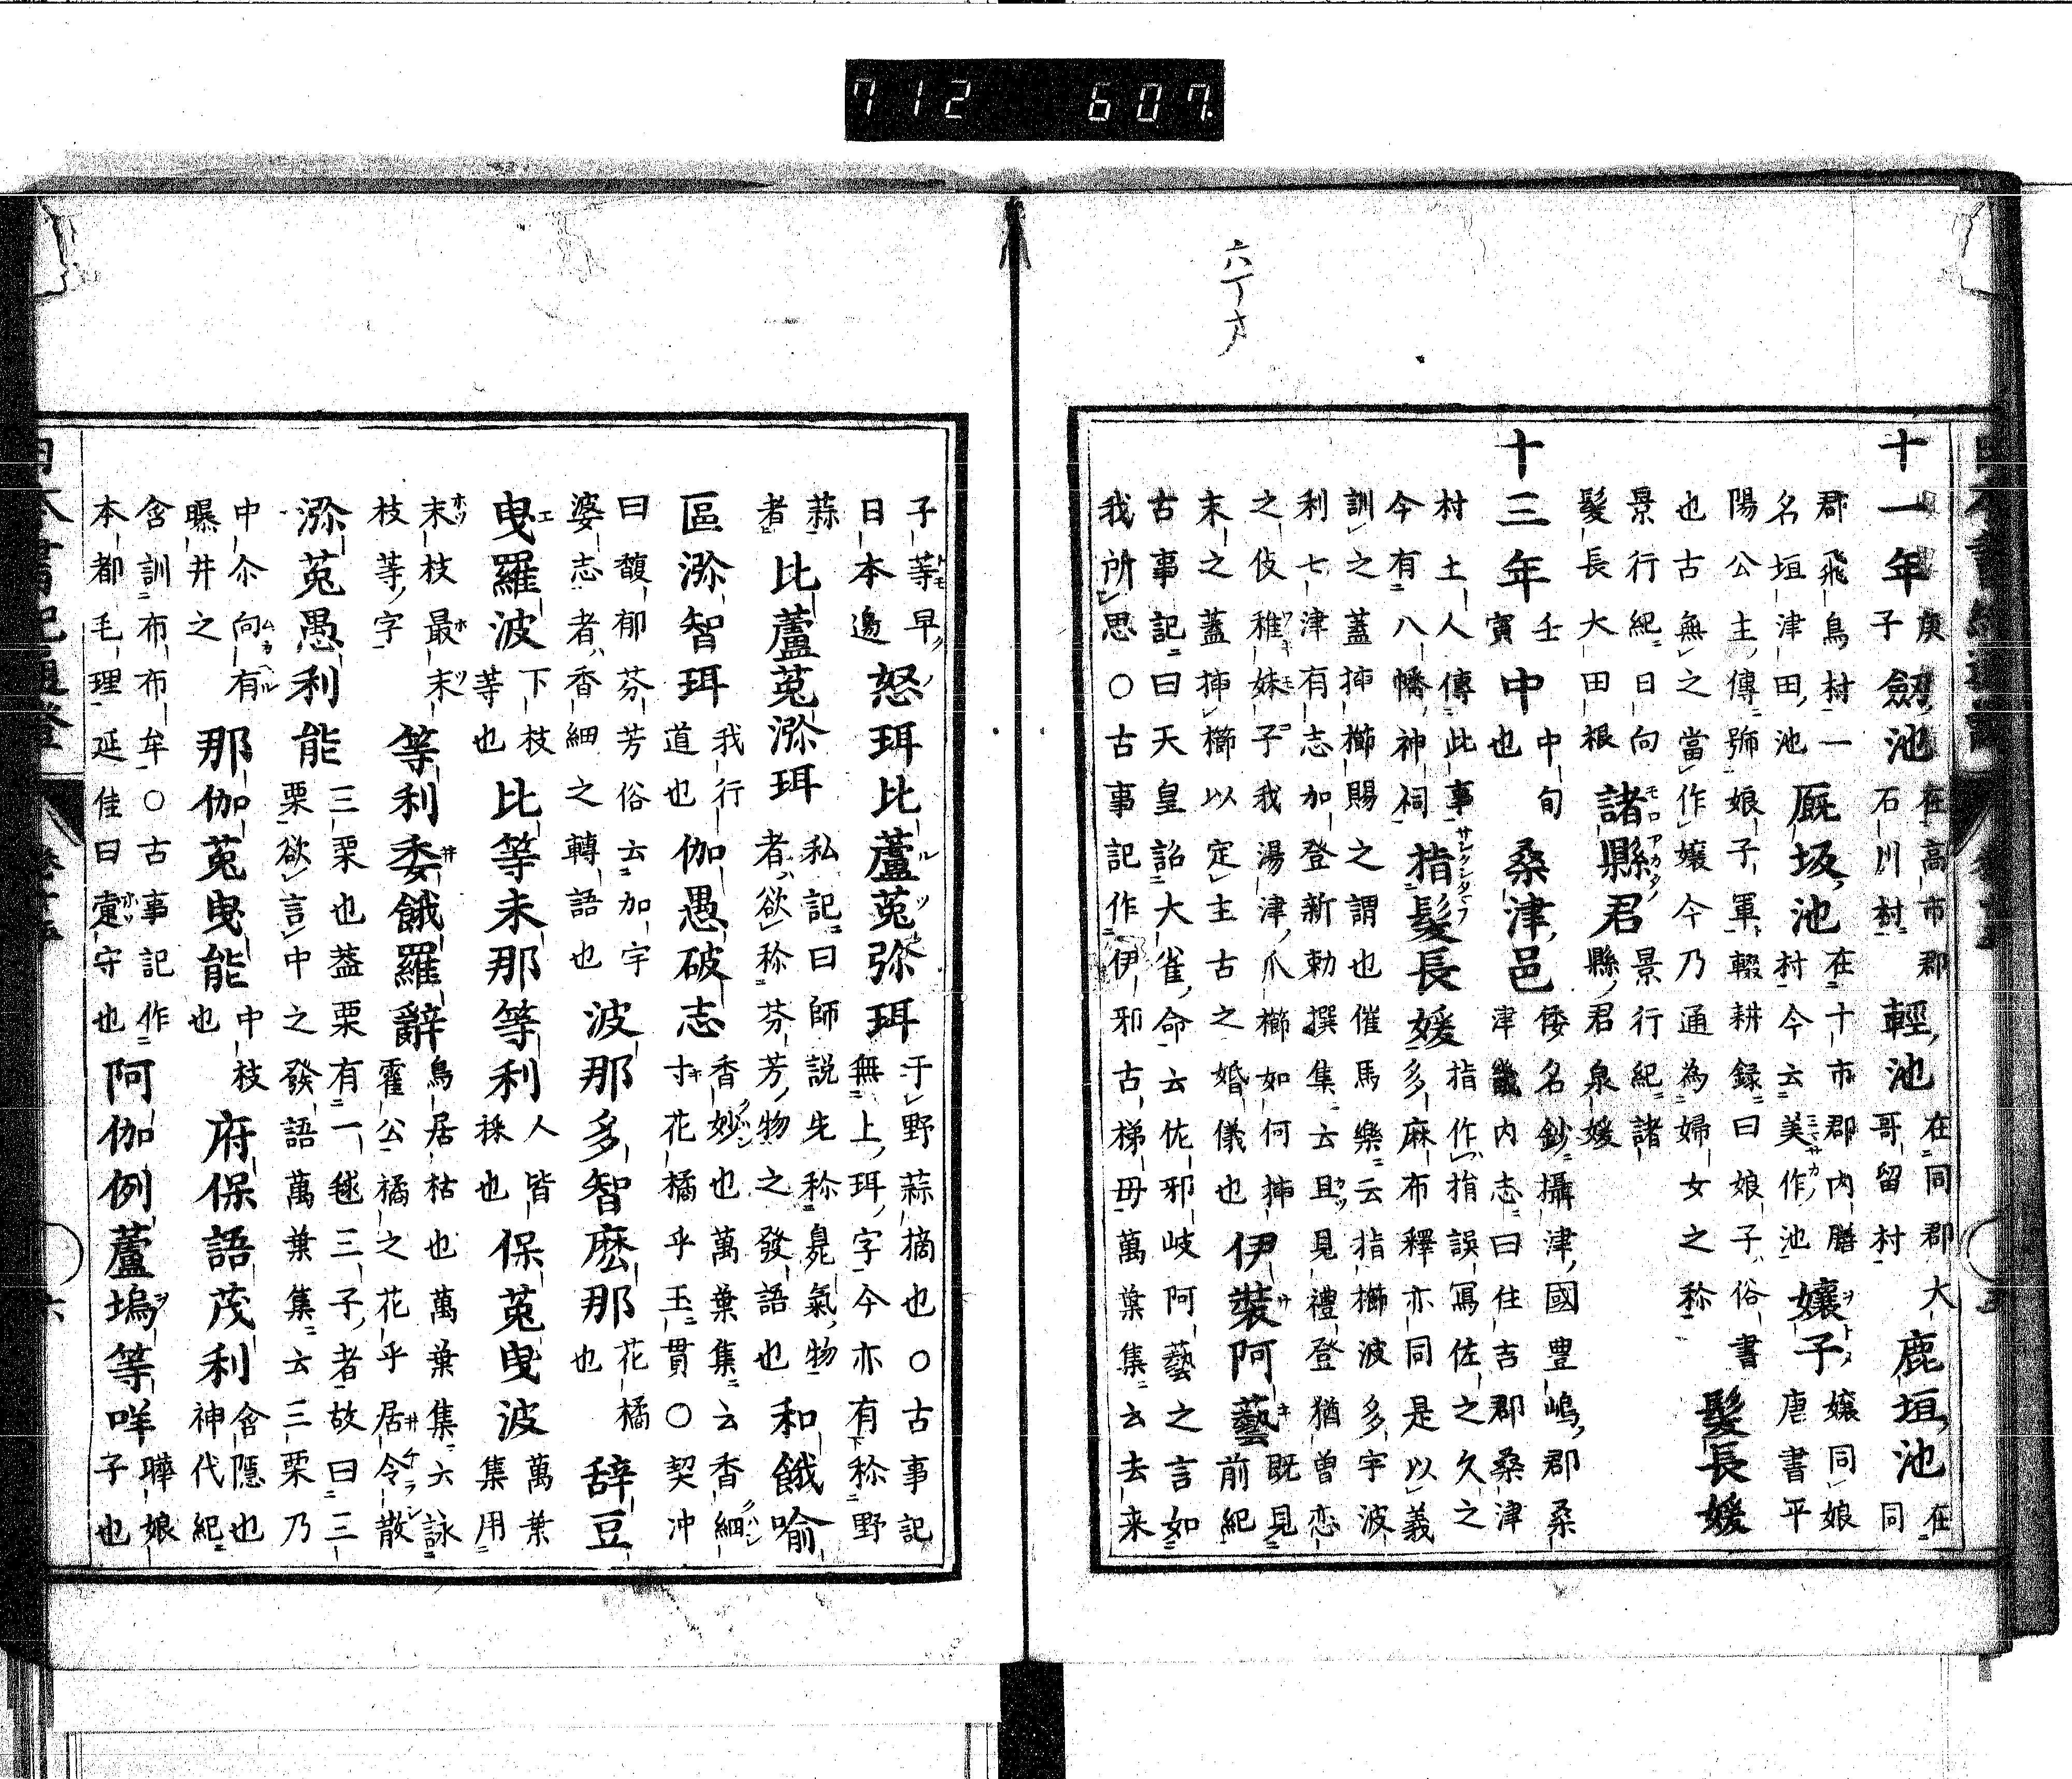 六丁オ
十一年 庚子 劔池 在高市郡石川村 輕池 在同郡大哥留村 鹿垣池 在同
郡飛鳥村一名垣津田池 厩坂池 在十市郡内膳村今云美作池 孃子 孃同娘唐書平
陽公主傳號娘子軍輟耕録曰娘子俗書也古無之當作孃今乃通為婦女之稱 髮長媛
景行紀日向髮長大田根 諸縣君 景行紀諸縣君泉媛
十三年 壬寅 中 中旬也 桑津邑 倭名鈔攝津國豊嶋郡桑津畿内志曰住吉郡桑津
村土人傳此事今有八幡神祠 指髮長媛 指作指誤冩佐之久之多麻布釋亦同是以義
訓之蓋挿櫛賜之謂也催馬樂云指櫛波多宇波利七津有志加登新勅撰集云且見禮登猶曽恋
之伎稚妹子我湯津爪櫛如何挿末之蓋挿櫛以定主古之婚儀也 伊裝阿藝 既見前紀
古事記曰天皇詔大雀命云佐邪岐阿藝之言如我所思○古事記作伊邪古梯毋萬葉集云去来
子等早日本邊 怒珥比蘆菟弥珥 于野蒜摘也○古事記無上珥字今亦有稱野
蒜者 比蘆菟瀰珥 私記曰師説先稱臭氣物者欲稱芬芳物之發語也 和餓喻
區瀰智珥 我行道也 伽愚破志 香妙也萬葉集云香細寸花橘乎玉貫○契沖
曰馥郁芬芳俗云加宇婆志者香細之轉語也 波那多智麽那 花橘也 辞豆
曳羅波 下枝等也 比等未那等利 人皆採也 保菟曳波 萬葉集用
末枝最末枝等字 等利委餓羅辭 鳥居枯也萬葉集六詠霍公橘之花乎居令散
瀰菟愚利能 三栗也葢栗有一毬三子者故曰三栗欲言中之發語萬葉集云三栗乃
中尒向有曝井之 那伽菟曳能 中枝也 府保語茂利 含隠也神代紀
含訓布布牟○古事記作本都毛理延佳曰守也 阿伽例蘆塢等咩 曄娘子也
712 607